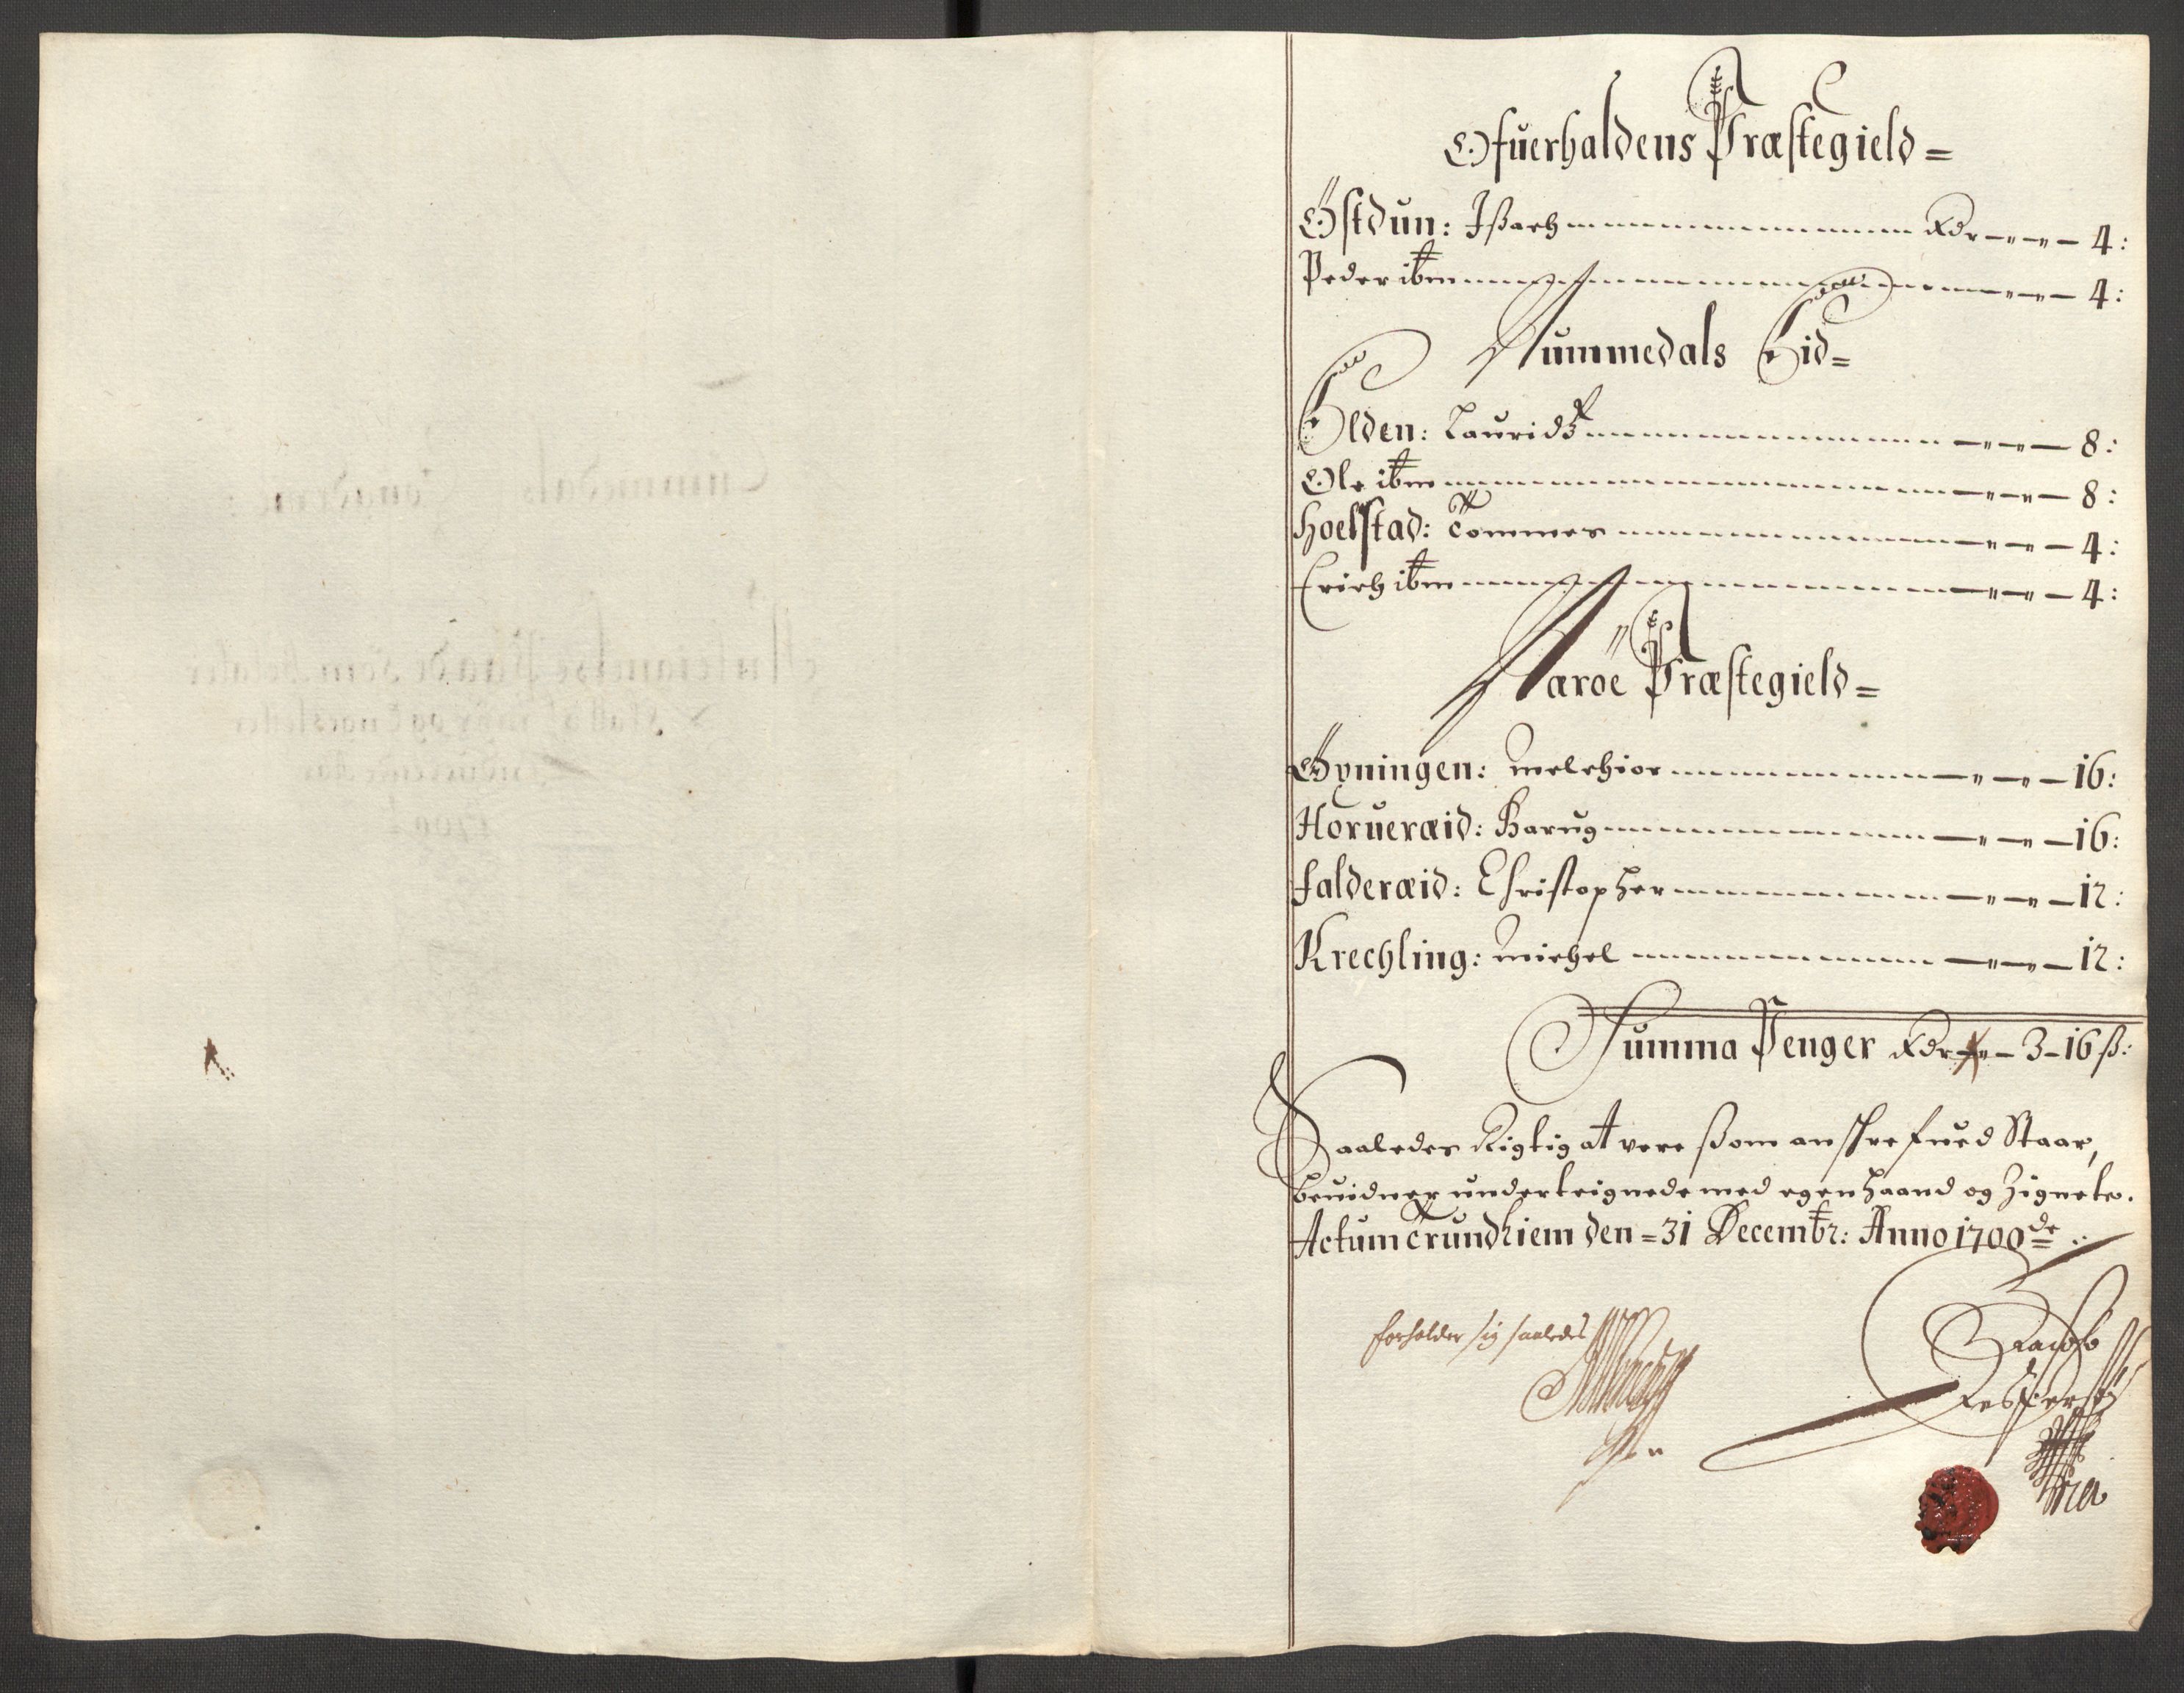 Ofuerhaldens Præstegield =
Østdun: Jßach Rdr 4:
Peder ibm 4:
Nummedals Eid =
Elden: Lauridtz 8:
Ole ibm 8:
Hoelstad: Tommes 4:
Erich ibm 4:
Naröe Præstegield =
Gyningen: Melchior 16:
Horueræid: Barug 16:
Falderæid: Christopher 12:
Krechling: Michel 12:
Summa Penger Rdr 3 - 16 ß:
Saaledes Rigtig at vere ßom anschrefued Staar,
beuidner underteignede med egen Haand og Zignete.
Actum Trundhiem den = 31 Decembr: Anno 1700de
forholder sig saaledes
Jacob
Jesper